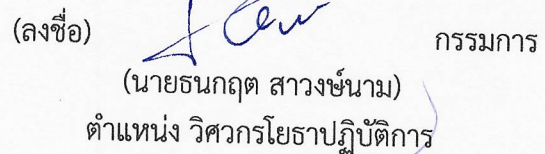 (ลงชื่อ) กรรมการ
(นายธนกฤต สาวงษ์นาม)
ตำแหน่ง วิศวกรโยธาปฏิบัติการ